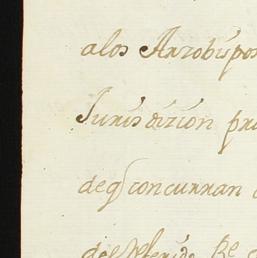 alos Arzobispos
Jurisdizion pr
deq̃ concurran
del Referido Rl